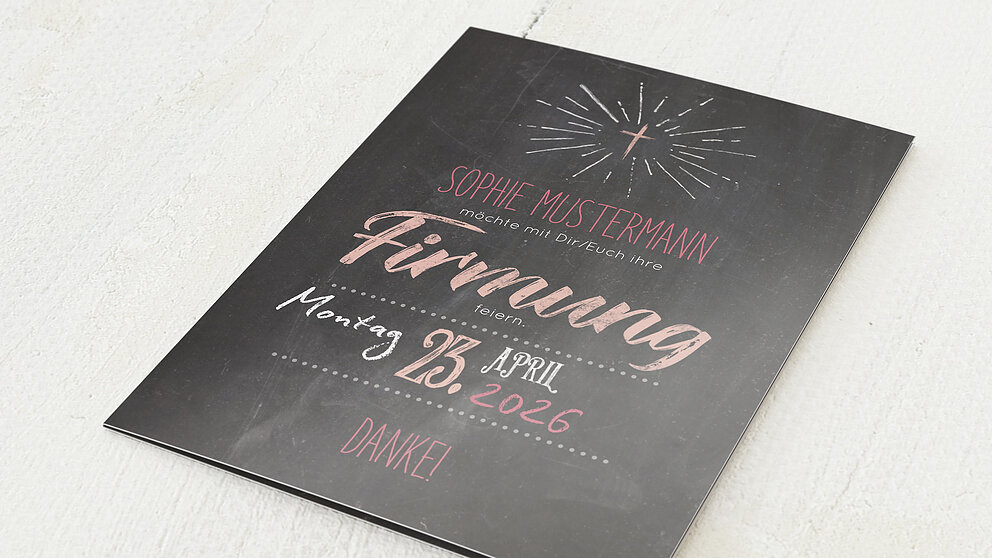 SOPHIE MUSTERMANN
möchte mit Dir/Euch ihre
Firmung
feiern.
Montag 23. APRIL 2026
DANKE!